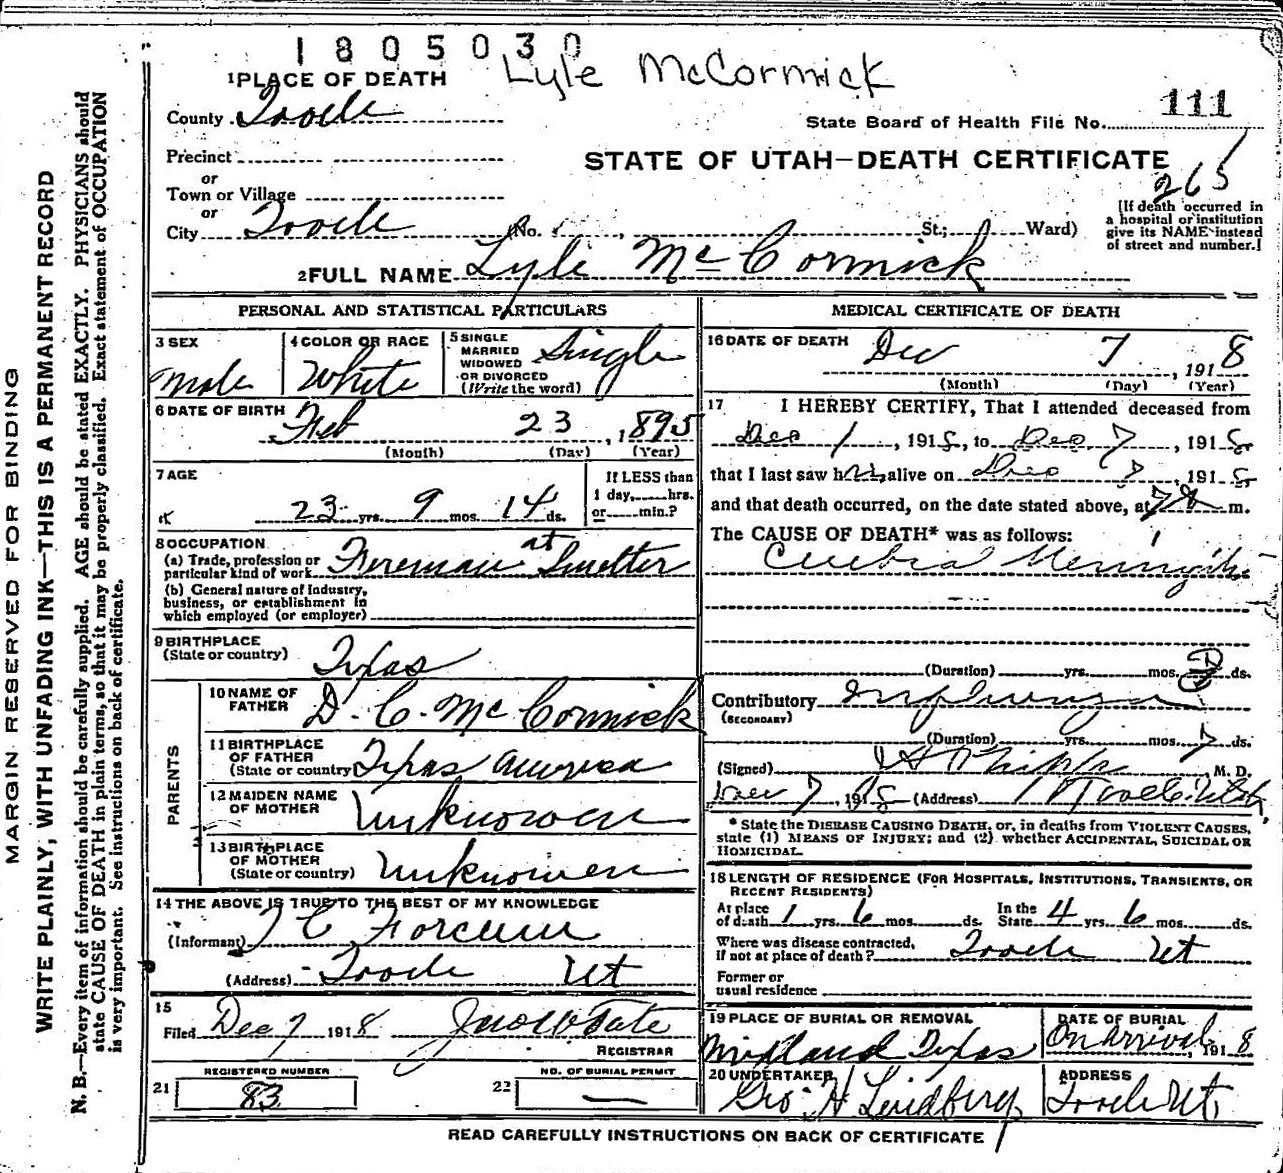 1805030
Lyle McCormick
1 PLACE OF DEATH
County Tooele
111
State Board of Health File No.
Precinct
or
STATE OF UTAH—DEATH CERTIFICATE
265
Town or Village
or
City Tooele (No. St.; Ward)
[If death occurred in
a hospital or institution
give its NAME instead
of street and number.]
2 FULL NAME Lyle McCormick
PERSONAL AND STATISTICAL PARTICULARS
3 SEX
Male
4 COLOR OR RACE
White
5 SINGLE
MARRIED
WIDOWED
OR DIVORCED
(Write the word)
Single
6 DATE OF BIRTH
Feb 23, 1895
(Month) (Day) (Year)
7 AGE
23 yrs. 9 mos. 14 ds.
If LESS than
1 day, hrs.
or min.?
8 OCCUPATION
(a) Trade, profession or
particular kind of work Foreman at Smelter
(b) General nature of Industry,
business, or establishment in
which employed (or employer)
9 BIRTHPLACE
(State or country) Texas
PARENTS
10 NAME OF
FATHER D. C. McCormick
11 BIRTHPLACE
OF FATHER
(State or country Texas America
12 MAIDEN NAME
OF MOTHER Unknown
13 BIRTHPLACE
OF MOTHER
(State or country) Unknown
14 THE ABOVE IS TRUE TO THE BEST OF MY KNOWLEDGE
(Informant)
(Address) Tooele Ut
15
Filed Dec 7 1918
REGISTRAR
REGISTERED NUMBER
21 83
NO. OF BURIAL PERMIT
22 —
MEDICAL CERTIFICATE OF DEATH
16 DATE OF DEATH
Dec 7, 1918
(Month) (Day) (Year)
17 I HEREBY CERTIFY, That I attended deceased from
Dec 1, 1918, to Dec 7, 1918
that I last saw him alive on Dec 7, 1918
and that death occurred, on the date stated above, at m.
The CAUSE OF DEATH* was as follows:
Cerebral Meningitis
(Duration) yrs. mos. ds.
Contributory Influenza
(SECONDARY)
(Duration) yrs. mos. 7 ds.
(Signed) Phipps, M. D.
Dec 7, 1918 (Address) Tooele Utah
* State the DISEASE CAUSING DEATH, or, in deaths from VIOLENT CAUSES,
state (1) MEANS OF INJURY; and (2) whether ACCIDENTAL, SUICIDAL OR
HOMICIDAL.
18 LENGTH OF RESIDENCE (FOR HOSPITALS, INSTITUTIONS, TRANSIENTS, OR
RECENT RESIDENTS)
At place
of death 1 yrs. 6 mos. ds.
In the
State 4 yrs. 6 mos. ds.
Where was disease contracted,
if not at place of death? Tooele Ut
Former or
usual residence
19 PLACE OF BURIAL OR REMOVAL
Midland Texas
DATE OF BURIAL
On arrival, 1918
20 UNDERTAKER
Geo H Lindberg
ADDRESS
Tooele Ut.
READ CAREFULLY INSTRUCTIONS ON BACK OF CERTIFICATE
MARGIN RESERVED FOR BINDING
WRITE PLAINLY, WITH UNFADING INK—THIS IS A PERMANENT RECORD
N. B.—Every item of information should be carefully supplied. AGE should be stated EXACTLY. PHYSICIANS should
state CAUSE OF DEATH in plain terms, so that it may be properly classified. Exact statement of OCCUPATION
is very important. See instructions on back of certificate.